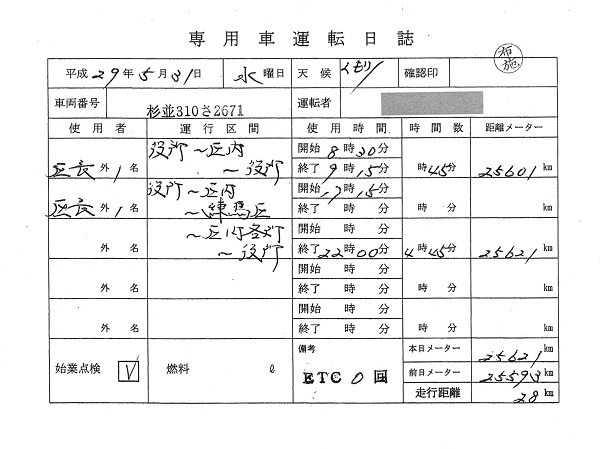 専用車運転日誌
布施
平成29年5月31日 水曜日 天候 くもり 確認印
車両番号 杉並310さ2671 運転者
使用者 運行区間 使用時間 時間数 距離メーター
区長外1名 役所～区内～役所 開始8時30分 終了9時15分 時45分 25601km
区長外1名 役所～区内～練馬区 開始17時15分 終了時分 時分 km
外名 ～区内各所～役所 開始時分 終了22時00分 4時45分 25621km
外名 開始時分 終了時分 時分 km
外名 開始時分 終了時分 時分 km
始業点検 V 燃料 ℓ 備考 ETC 0回
本日メーター 25621km
前日メーター 25593km
走行距離 28km